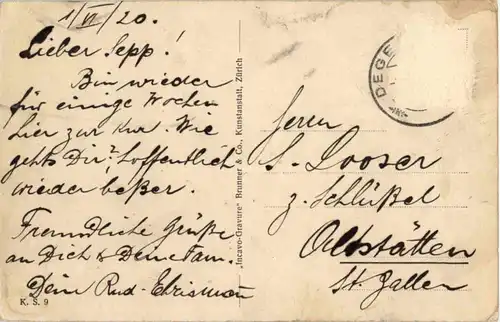 1/VI/20.
Lieber Sepp!
Bin wieder
für einige Wochen
hier zur Kur. Wie
gehts Dir? hoffentlich
wieder beßer.
Freundliche Grüße
an Dich & Deine Fam.
Dein Rud. Ehrismann
K. S. 9
"Incavo-Gravure" Brunner & Co., Kunstanstalt, Zürich
DEGE
Herrn
S. Looser
z. Schlüßel
Altstätten
St. Gallen